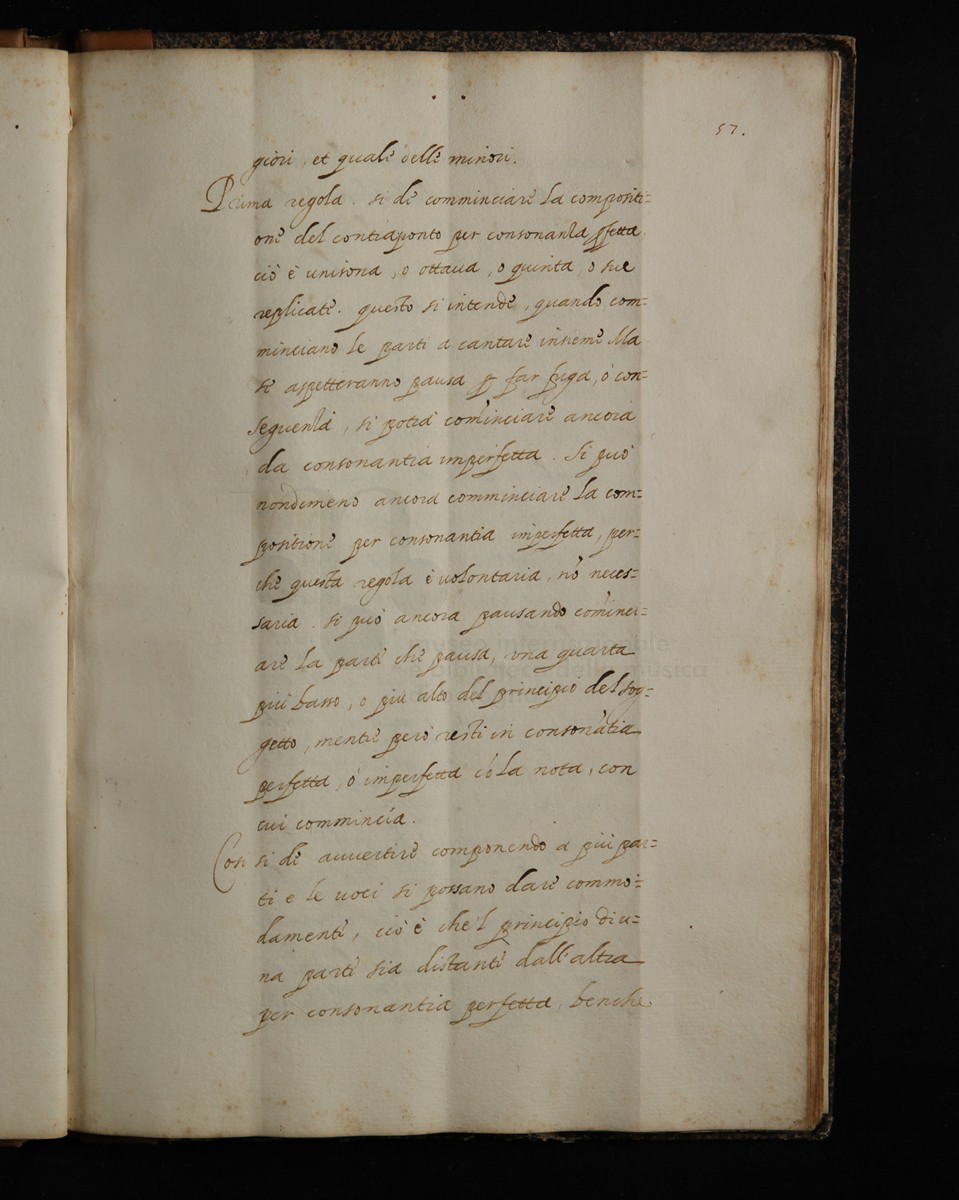 57.
giori, et quale delle minori.
Prima regola. si de comminciare la compositi=
one del contraponto per consonanza pfetta
ciò è unisona, o ottaua, o quinta, o sue
replicate. questo si intende, quando com=
minciano le parti a cantare insieme. Ma
se aspetteranno pausa p far fuga, ò con=
seguenza, si potrà cominciare ancora
da consonantia imperfetta. Si può
nondimeno ancora comminciare la com=
positione per consonantia imperfetta, per=
che questa regola è uolontaria, nō neces=
saria. si può ancora pausando cominci=
are la parte che pausa, una quarta
più basso, o più alto del principio del sog=
getto, mentre però resti in consonātia
perfetta, ò imperfetta cō la nota, con
cui commincia.
Cosi si de auuertire componendo a più par=
ti e le uoci si possano dare commo=
damente, ciò è che'l principio di u=
na parte sia distante dall'altra
per consonantia perfetta, benche
museo internazionale
e biblioteca della musica